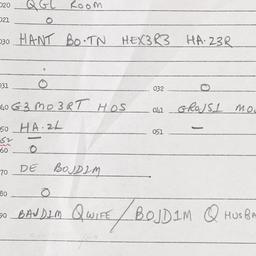 020 QGL Room
021 O
030 HANT BO·TN HEX3R3 HA·Z3R
031 O 032 O
40 G3 MO3RT HOS 041 GROJSI MO
50 HA·2L 051 —
52 —
60 O
70 DE BOJDIM
80 O
90 BAJDIM Q WIFE / BOJDIM Q HUSBA